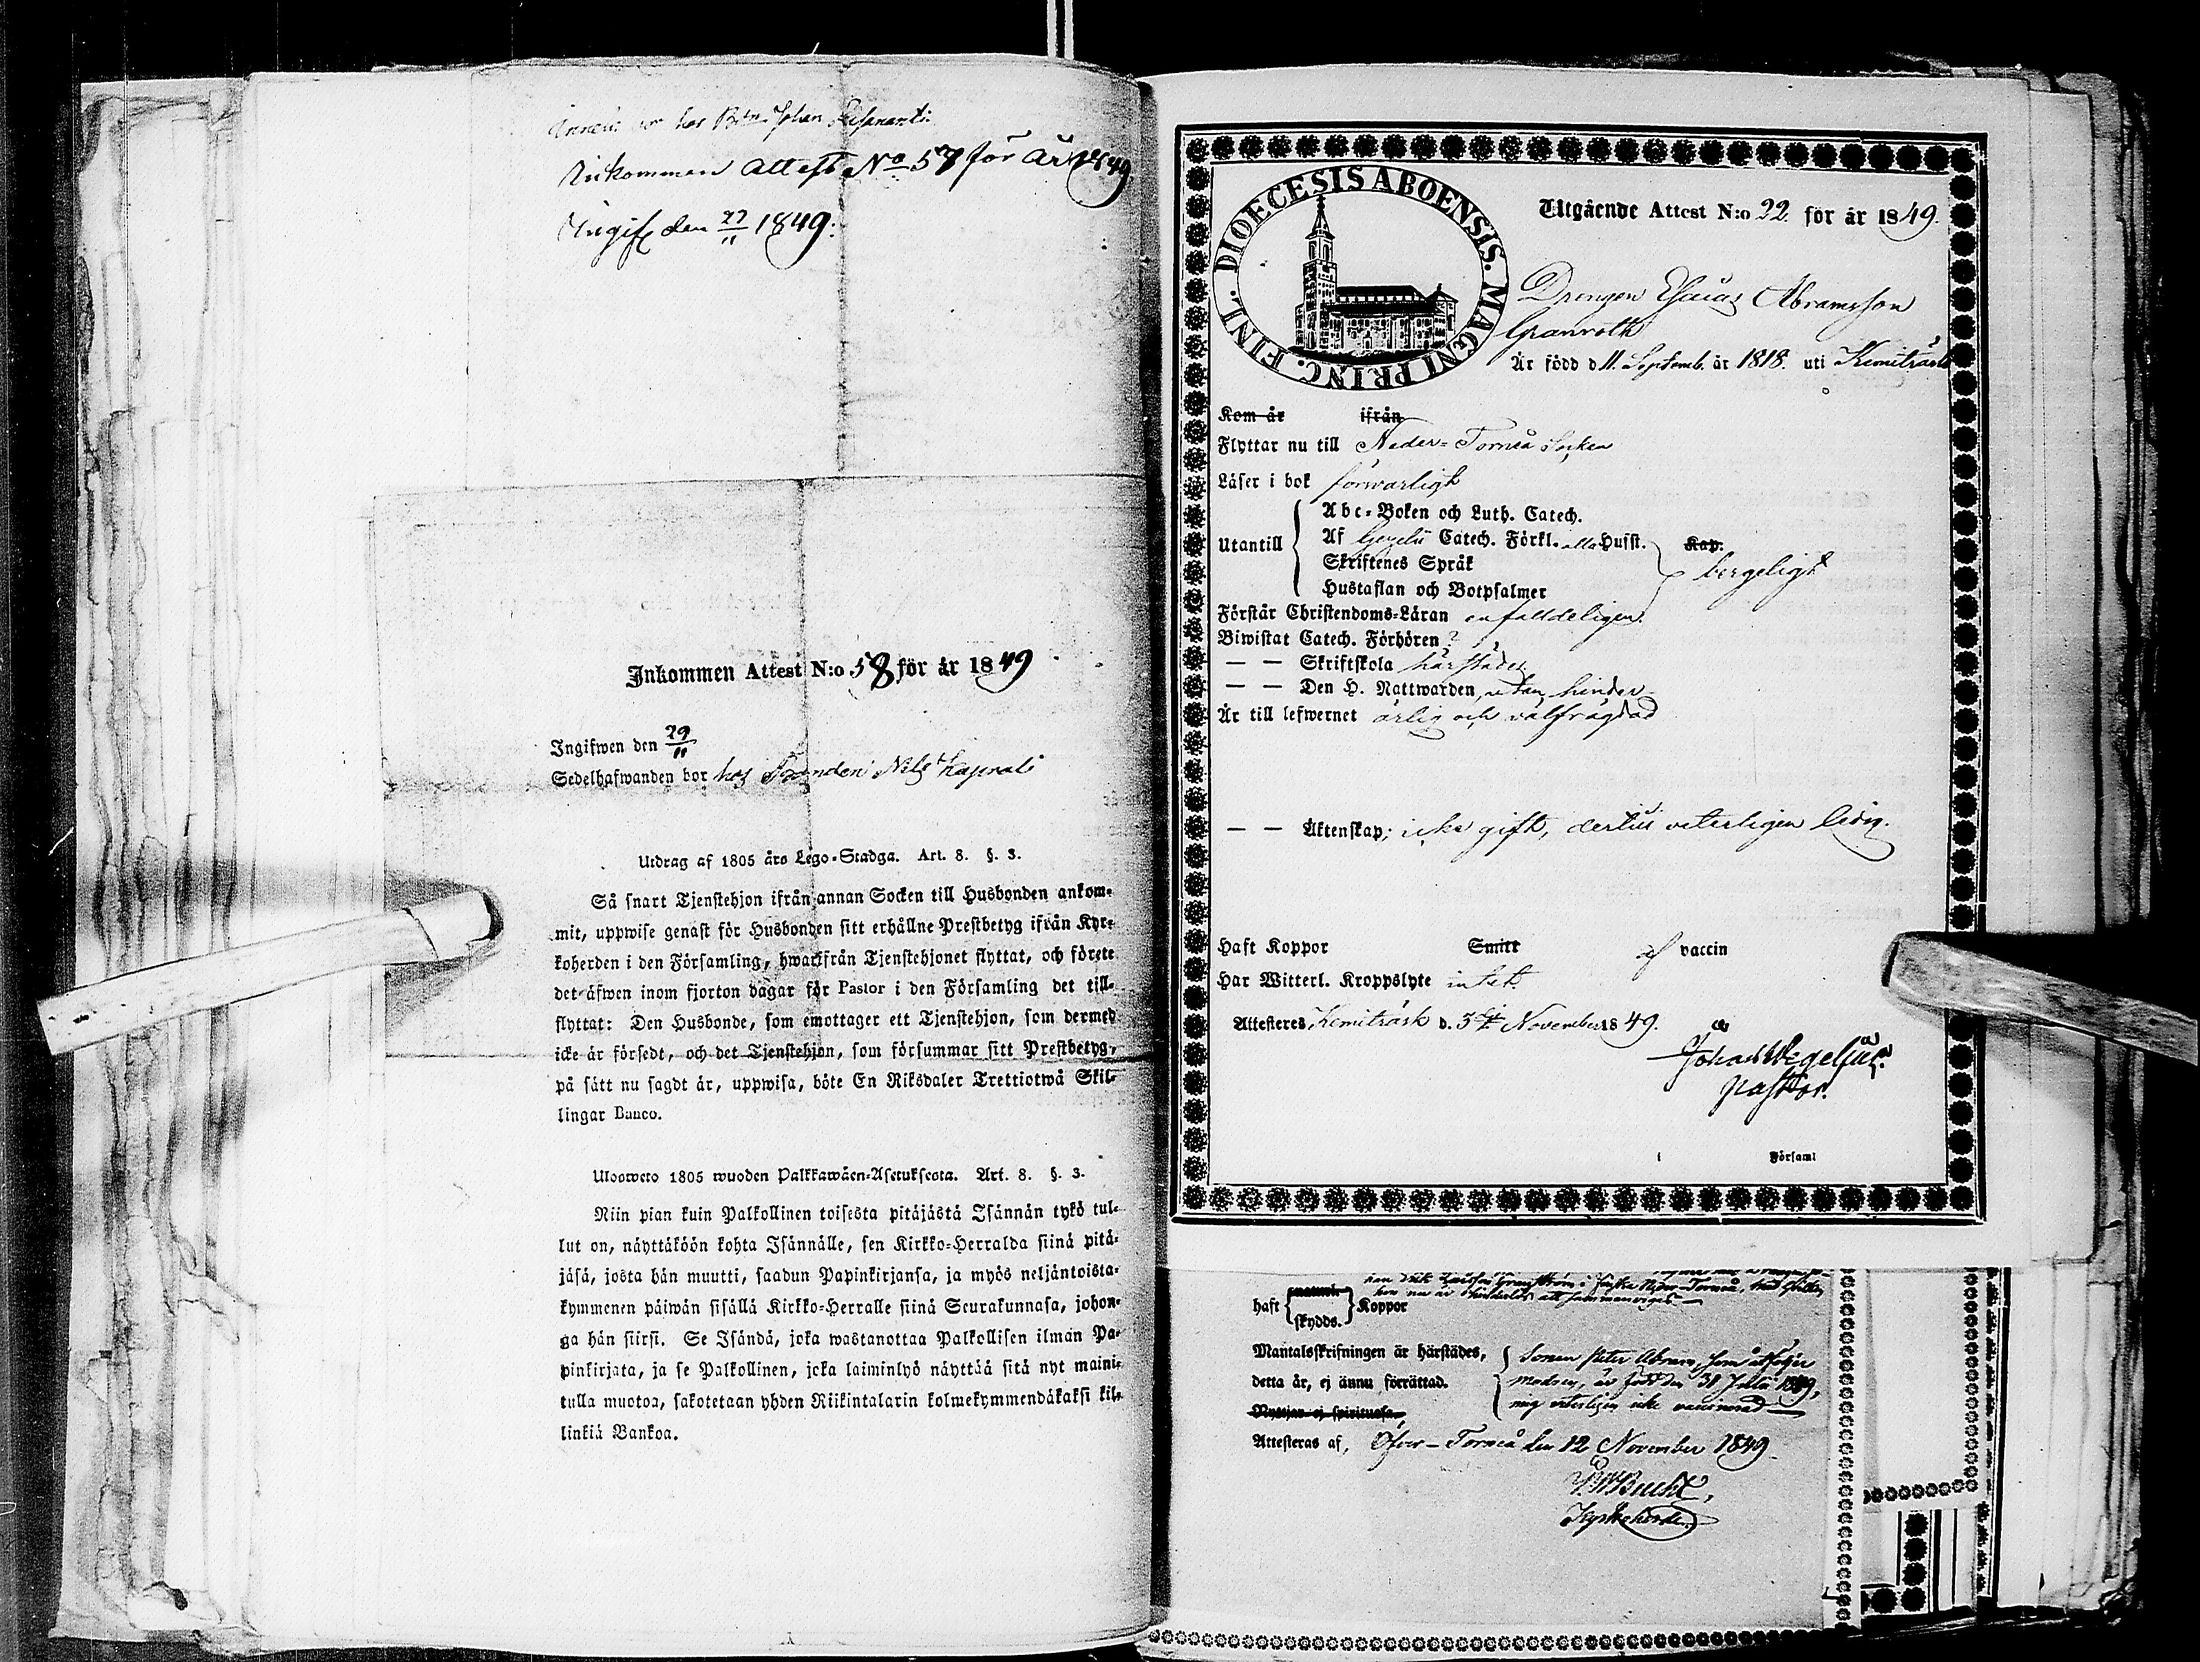 Inneh: bor hos Bdn Johan
Inkommen Attest No 57 för år 1849
Ingif. den 27/11 1849.
Inkommen Attest N:o 58 för år 1849
Ingifwen den 29/11
Sedelhafwanden bor hos Bonden Nils Kaprali
Utdrag af 1805 års Lego-Stadga. Art. 8. §. 3.
Så snart Tjenstehjon ifrån annan Socken till Husbonden ankom-
mit, uppwise genast för Husbonden sitt erhållne Prestbetyg ifrån Kyr-
koherden i den Församling, hwarifrån Tjenstehjonet flyttat, och förete
det äfwen inom fjorton dagar för Pastor i den Församling det till-
flyttat: Den Husbonde, som emottager ett Tjenstehjon, som dermed
icke är försedt, och det Tjenstehjon, som försummar sitt Prestbetyg,
på sätt nu sagdt är, uppwisa, böte En Riksdaler Trettiotwå Skil-
lingar Banco.
Ulosweto 1805 wuoden Palkkawäen-Asetuksesta. Art. 8. §. 3.
Niin pian kuin Palkollinen toisesta pitäjästä Isännän tykö tul-
lut on, näyttäköön kohta Isännälle, sen Kirkko-Herralda siinä pitä-
jäsä, josta hän muutti, saadun Papinkirjansa, ja myös neljäntoista-
kymmenen päiwän sisällä Kirkko-Herralle siinä Seurakunnasa, johon-
ga hän siirsi. Se Isändä, joka wastanottaa Palkollisen ilman Pa-
pinkirjata, ja se Palkollinen, joka laiminlyö näyttää sitä nyt maini-
tulla muotoa, sakotetaan yhden Riikintalarin kolmekymmendäkaksi kil-
linkiä Bankoa.
DIOECESIS ABOENSIS. MAGNI PRINC. FINL.
Utgående Attest N:o 22 för år 1849.
Drengen Esaias Abramsson
Granroth
Är född d 11. Septemb. år 1818. uti Kemiträsk
Kom år ifrån
Flyttar nu till Neder-Torneå Socken
Läser i bok förswarligt
Utantill
Abc-Boken och Luth. Catech.
Af Gezelii Catech. Förkl. alla Husst. Kap.
Skriftenes Språk bergeligt
Hustaflan och Botpsalmer
Förstår Christendoms-Läran enfalldeligen.
Biwistat Catech. Förhören ?
— — Skriftskola härstädes
— — Den H. Nattwarden, utan hinder
Är till lefwernet ärlig och wälfrägdad
— — Äktenskap; icke gift, dertill veterligen ledig.
Haft Koppor Smitt af vaccin
Har Witterl. Kroppslyte intet
Attesteres Kemiträsk d. 5te November 1849.
Johan Wegelius.
Pastor.
i Församl
haft naturl. skydds. Koppor
Mantalsskrifningen är härstädes, Sonen Peter Abram, som åtföljer
detta år, ej ännu förrättad. modren, är född den 31 Julii 1849,
mig veterligen icke vaccinerad
Attesteras af, Öfver-Torneå den 12 November 1849
Kyrkoherde.